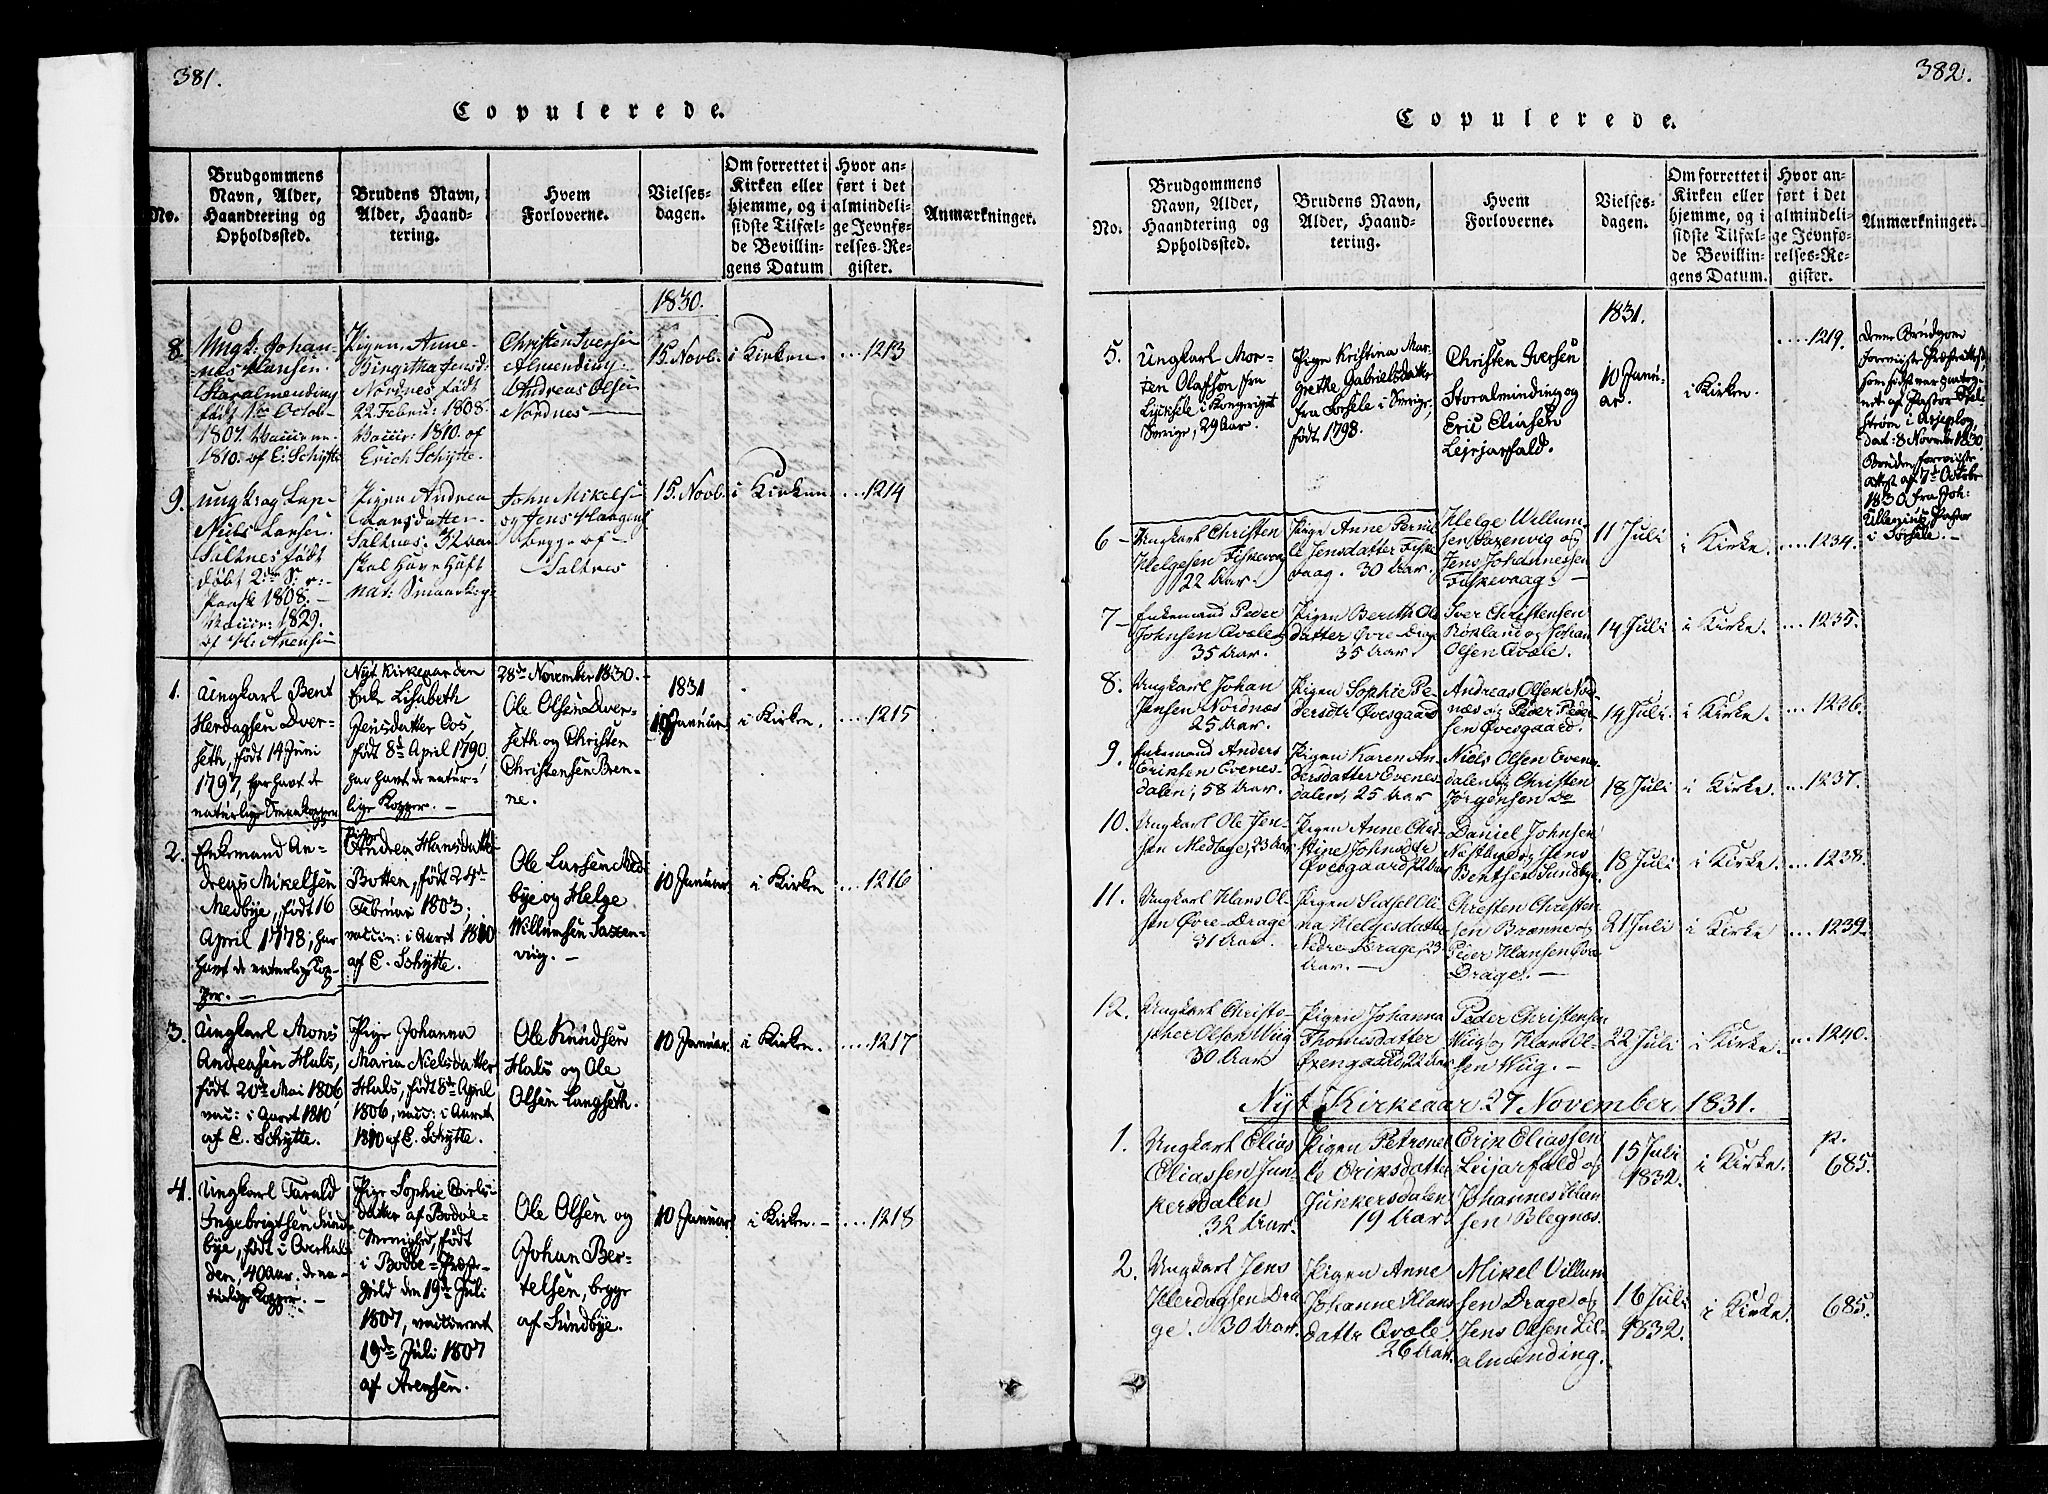 381.
Copulerede.
No.
Brudgommens
Navn, Alder,
Haandtering og
Opholdssted.
Brudens Navn,
Alder, Haand-
tering.
Hvem
Forloverne.
Vielses-
dagen.
Om forrettet i
Kirken eller
hjemme, og i
sidste Tilfæl-
de Bevillin-
gens Datum
Hvor an-
ført i det
almindeli-
ge Jevnfø-
relses-Re-
gister.
Anmærkninger.
1830.
8.
Ungk: Johan-
nes Hansen.
Storalmending
født 1ste Octob-
1807. Vaccine.
1810. af E. Schytte
Pigen, Anne
Birgitha Jensd:
Nordnes født
22 Febru: 1808.
Vacci: 1810. af
Erich Schytte.
Christen Iversen
Almending:
Andreas Olsen
Nordnes
15. Novb.
i Kirken.
....1213
9.
Ungk og Lap-
Niels Larsen
Saltnes født
døbt 2den S: e:
Paask 1808.
Vacci: 1829.
af H: Arensen
Pigen Andrea
Larsdatter
Saltnes. 32 aar
skal Have Haft
nat: Smaakop:
John Mikelsen
og Jens Haagens
begge af
Saltnes
15. Novb.
i Kirken
...1214
Nyt Kirkeaar den
28de November 1830.
1.
Ungkarl Bent
Herdagsen Dver-
seth, født 14 Juni
1797, har havt de
naturlige Smaakopper
Enke Lisabeth
Jensdatter Oos,
født 8de April 1790,
har havt de natur-
lige Kopper. —
Ole Olsen Dver-
seth og Christen
Christensen Bren-
ne.
1831
10 Januar
i Kirken.
....1215
2.
Enkemand An-
dreas Mikelsen
Medbye, født 16
April 1778, har
havt de naturlig Kop-
per. —
Pigen
Andrea Hansdatter
Botten, født 24de
Februar 1803;
vaccin: i Aaret 1810
af E. Schytte.
Ole Larsen Med-
bye og Helge
Willumsen Saxen-
vig. —
10 Januar
i Kirken
....1216
3.
Ungkarl Mons
Andreasen Hals,
født 20de Mai 1806,
vacc: i Aaret 1810
af E. Schytte.
Pige Johanna
Maria Nielsdatter
Hals, født 8de April
1806, vacc: i Aaret
1810 af E. Schytte.
Ole Knudsen
Hals og Ole
Olsen Langseth.
10 Januar.
i Kirken.
....1217
4.
Ungkarl Tarald
Ingebrigtsen Sund-
bye, født i Overhal-
den, 40 Aar. de na-
turlige Kopper. —
Pige Sophie Carls-
datter af Bodøe-
Menighed, født
i Bodøe-Præste-
gield den 19de Juli
1807, vaccineret
19de Juli 1807
af Arensen.
Ole Olsen og
Johan Ber-
telsen, begge
af Sundbye.
10 Januar
i Kirken. —
....1218
382.
Copulerede.
No.
Brudgommens
Navn, Alder,
Haandtering og
Opholdssted.
Brudens Navn,
Alder, Haand-
tering.
Hvem
Forloverne.
Vielses-
dagen.
Om forrettet i
Kirken eller
hjemme, og i
sidste Tilfæl-
de Bevillin-
gens Datum.
Hvor an-
ført i det
almindeli-
ge Jevnfø-
relses-Re-
gister.
Anmærkninger.
1831.
5.
Ungkarl Mor-
ten Olafson fra
Lycksele i Kongeriget
Sverige, 29 Aar.
Pige Kristina Mar-
grethe Gabrielsdatter
fra Sorsele i Sverige,
født 1798.
Christen Iversen
Storalminding og
Eric Eliasen
Lejrjarfald.
10 Janu-
ar.
i Kirken.
....1219.
Denne Brudgom
foreviiste Præsteattest
som sidst var unteg-
net af Pastor
strøm i Arjeplog,
dat: 8 November 1830
Bruden foreviiste
attest af 7de Octobr
1830, fra Joh:
Ullenius, Pastor
i Sorsele. —
6 —
Ungkarl Christen
Helgesen Fiskevaag
22 Aar.
Pige Anne Pernil-
le Jensdatter Fiske-
vaag. 30 Aar.
Helge Willum-
sen Saxenvig og
Jens Johannessen
Fiskevaag. —
11 Juli
i Kirke.
....1234.
7 —
Enkemand Peder
Johnsen Qvæle
35 Aar.
Pigen Bereth Ols-
datter Øvre-Drage
35 Aar.
Iver Christensen
Røkland og Johan
Olsen Qvæle.
14 Juli
i Kirke.
....1235.
8.
Ungkarl Johan
Jensen Nordnæs
25 Aar.
Pigen Sophie Pe-
dersdtr Øvesgaard
Andreas Olsen Nord-
næs og Peder Peder-
sen Øvesgaard.
14 Juli.
i Kirke.
....1236.
9.
Enkemand Anders
Eriksen Evenes-
dalen, 58 Aar.
Pigen Karen An-
dersdatter Evenes-
dalen, 25 Aar
Niels Olsen Evens-
dalen og Christen
Jørgensen do
18 Juli
i Kirke.
....1237.
10.
Ungkarl Ole Jen-
sen Medlage, 23 Aar
Pigen Anne Chri-
stine Johnsdtr
Øvesgaard, 22 Aar
Daniel Johnsen
Næstbye og Jens
Bentsen Sundbye.
18 Juli
i Kirke.
....1238.
11.
Ungkarl Hans Ol-
sen Øvre-Drage
31 Aar.
Pigen Sidsel Oli-
na Helgesdatter
Nedre Drage, 23
Aar. —
Christen Christen-
sen Brænne og
Peder Hansen Øvre
Drage. —
21 Juli
i Kirke
....1239.
12.
Ungkarl Christo-
pher Olsen Wiig
30 Aar.
Pigen Johanna
Thomesdatter
Øxengaard, 22 Aar
Peder Christensen
Wiig og Hans Ol-
sen Wiig. —
22 Juli
i Kirke
....1240.
Nyt Kirkeaar 27 November 1831.
1.
Ungkarl Elias
Eliassen Jun-
kersdalen
32 Aar.
Pigen Petronel-
le Eriksdatter
Junkersdalen
19 Aar.
Erik Eliassen
Leijarfald og
Johannes Han-
sen Blegnæs.
15 Juli
1832.
i Kirke.
p.
685.
2.
Ungkarl Jens
Herdagsen Dra-
ge. 30 Aar.
Pigen Anne
Johanne Hans-
dattr Qvæle.
26 Aar.
Mikel Villum-
sen Drage og
Jens Olsen Lil-
alminding.
16 Juli
1832.
i Kirke.
685.